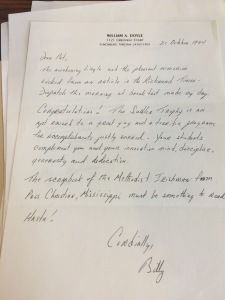 WILLIAM A. DOYLE
21 October 1994
Dear Pat,
The awakening and the pleasant
from an article in the Richmond Times-
Dispatch this morning at breakfast made my day.
Congratulations! The Trophy is an
apt to a great guy and a program
the accomplishments justly earned. Your students
complement you and your mind, discipline,
generosity and dedication.
The scrapbook of the Methodist Irishman from
Pass Christian, Mississippi must be something to read.
Hasta!
Cordially,
Billy